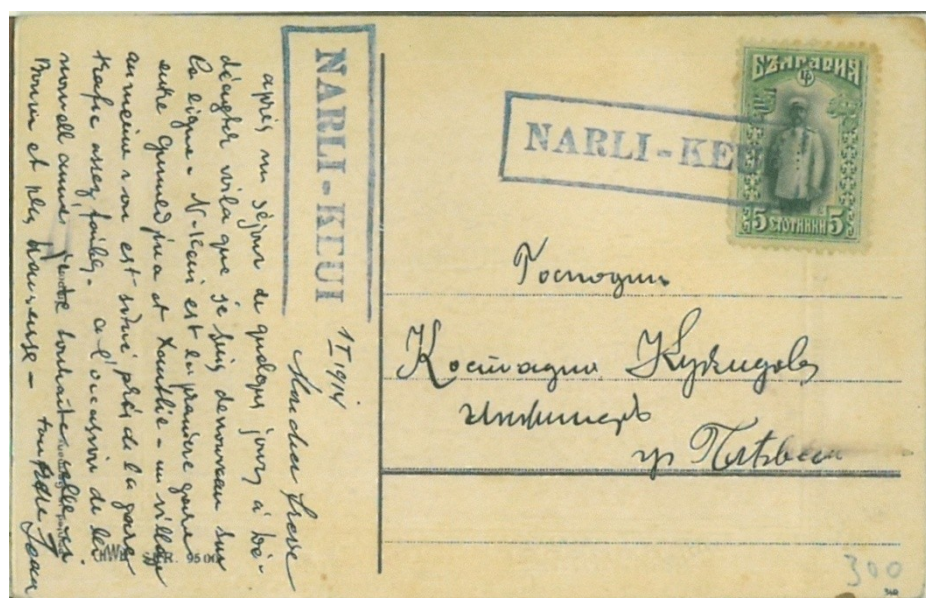 NARLI-KEUI
1 I 1914
Mon cher frère
après un séjour de quelques jours à Dé-
déagtch voilà que je suis de nouveau sur
la ligne - N-Keui est la première gare
entre Gumuldjina et Xanthie - un village
au même nom est situé près de la gare
trafic assez faible - à l'occasion de la
nouvelle année je vous souhaite
Bonne et plus heureuse - ton frère Jean
HWB SER. 9500
NARLI-KEU
БЪЛГАРИЯ
5 СТОТИНКИ 5
Господинъ
Костадинъ
инженеръ
гр Плѣвенъ
300
340